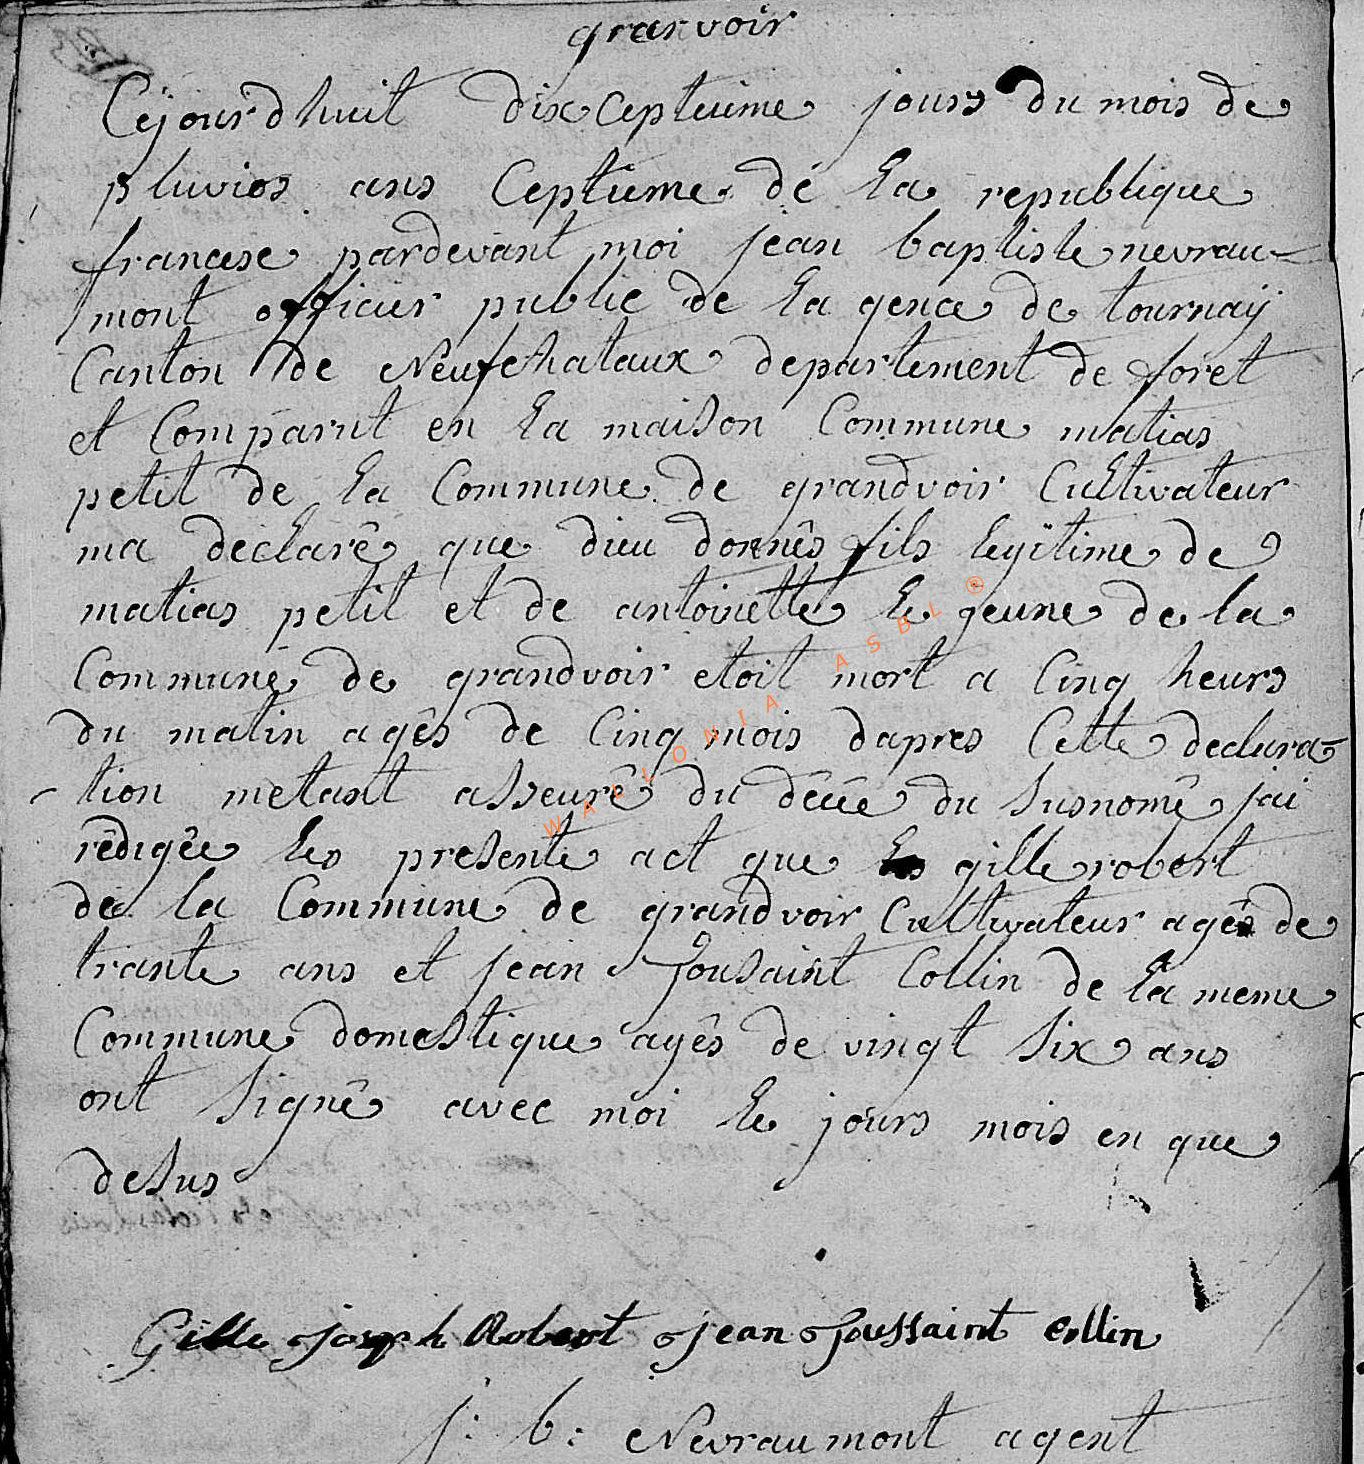 granvoir
Cejourdhuit dix ceptieme jours du mois de
pluvios ans Ceptieme de La republique
francese pardevant moi jean baptiste nevrau-
mont officier public de La gence de tournaÿ
Canton de Neufchataux departement de foret
et Comparut en La maison Commune matias
petit de La Commune de grandvoir Cultivateur
ma declarê que dieu donnês fils Legitime de
matias petit et de antoinette Le jeune de la
Commune de grandvoir etoit mort a Cinq heurs
du matin agês de Cinq mois dapres Cette declara-
-tion metant asseurê du dêcêe du susnomê jai
rêdigêe Les presente act que gille robert
de la Commune de grandvoir Cultivateur agês de
trante ans et jean Tousaint Collin de La meme
Commune domestique agês de vingt Six ans
ont Signê avec moi Le jours mois en que
desus
Gille Joseph Robert jean Toussaint Collin
j: b: Nevraumont agent
WALLONIA ASBL ®